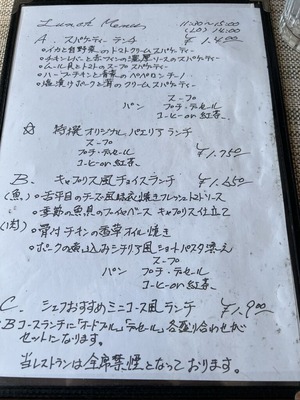 Lunch Menu
11:00~15:00
(LO) 14:00
A. スパゲティー ランチ ¥1,400
○イカと自野菜のトマトクリームスパゲティー
○チキンレバーと
ソースのスパゲティー
○ムール貝とトマトのスープスパゲティー
○ハーブチキンと青菜のペペロンチーノ
○塩漬けポークと
のクリームスパゲティー
スープ
パン プチ・デセール
コーヒー or 紅茶
☆ 特撰 オリジナル パエリア ランチ
スープ
プチ・デセール ¥1,750
コーヒー or 紅茶
B. キャプリス風チョイスランチ ¥1,650
(魚) ○舌平目のチーズ風味衣焼きフレッシュトマトソース
○季節の魚貝のブイヤベース キャプリス仕立て
(肉) ○骨付チキンの香草オイル焼き
○ポークの煮込みシチリア風 ショートパスタ添え
スープ
パン プチ・デセール
コーヒー or 紅茶
C. シェフおすすめミニコース風ランチ ¥1,900
Bコースランチに「オードブル」「デセール」盛り合わせが
セットになります。
当レストランは全席禁煙となっております。